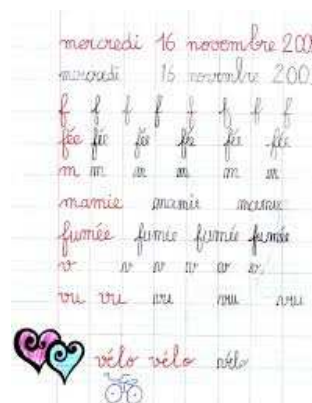 mercredi 16 novembre 200
mercredi 16 novembre 200
f f f f f f f f
fée fée fée fée fée fée
m m m m m m
mamie mamie mamie
fumée fumée fumée fumée
v v v v v v
vu vu vu vu vu
vélo vélo vélo